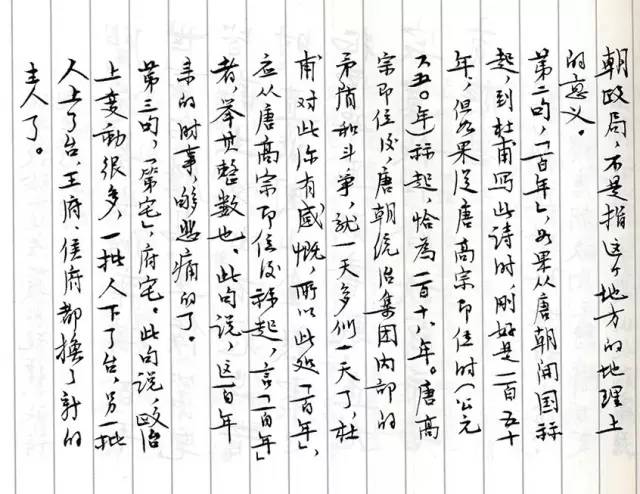 朝政局，不是指这个地方的地理上
的意义。
第二句，「百年」，如果从唐朝开国祘
起，到杜甫写此诗时，刚好是一百五十
年，但如果从唐高宗即位时（公元
六五〇年）祘起，恰为一百十八年。唐高
宗即位后，唐朝统治集团内部的
矛盾和斗争，就一天多似一天了，杜
甫对此有感慨，所以此处「百年」，
应从唐高宗即位后祘起，言「百年」
者，举其整数也。此句说，这一百年
来的时事，够悲痛的了。
第三句，「第宅」，府宅。此句说，政治
上变动很多，一批人下了台，另一批
人上了台，王府、侯府都换了新的
主人了。